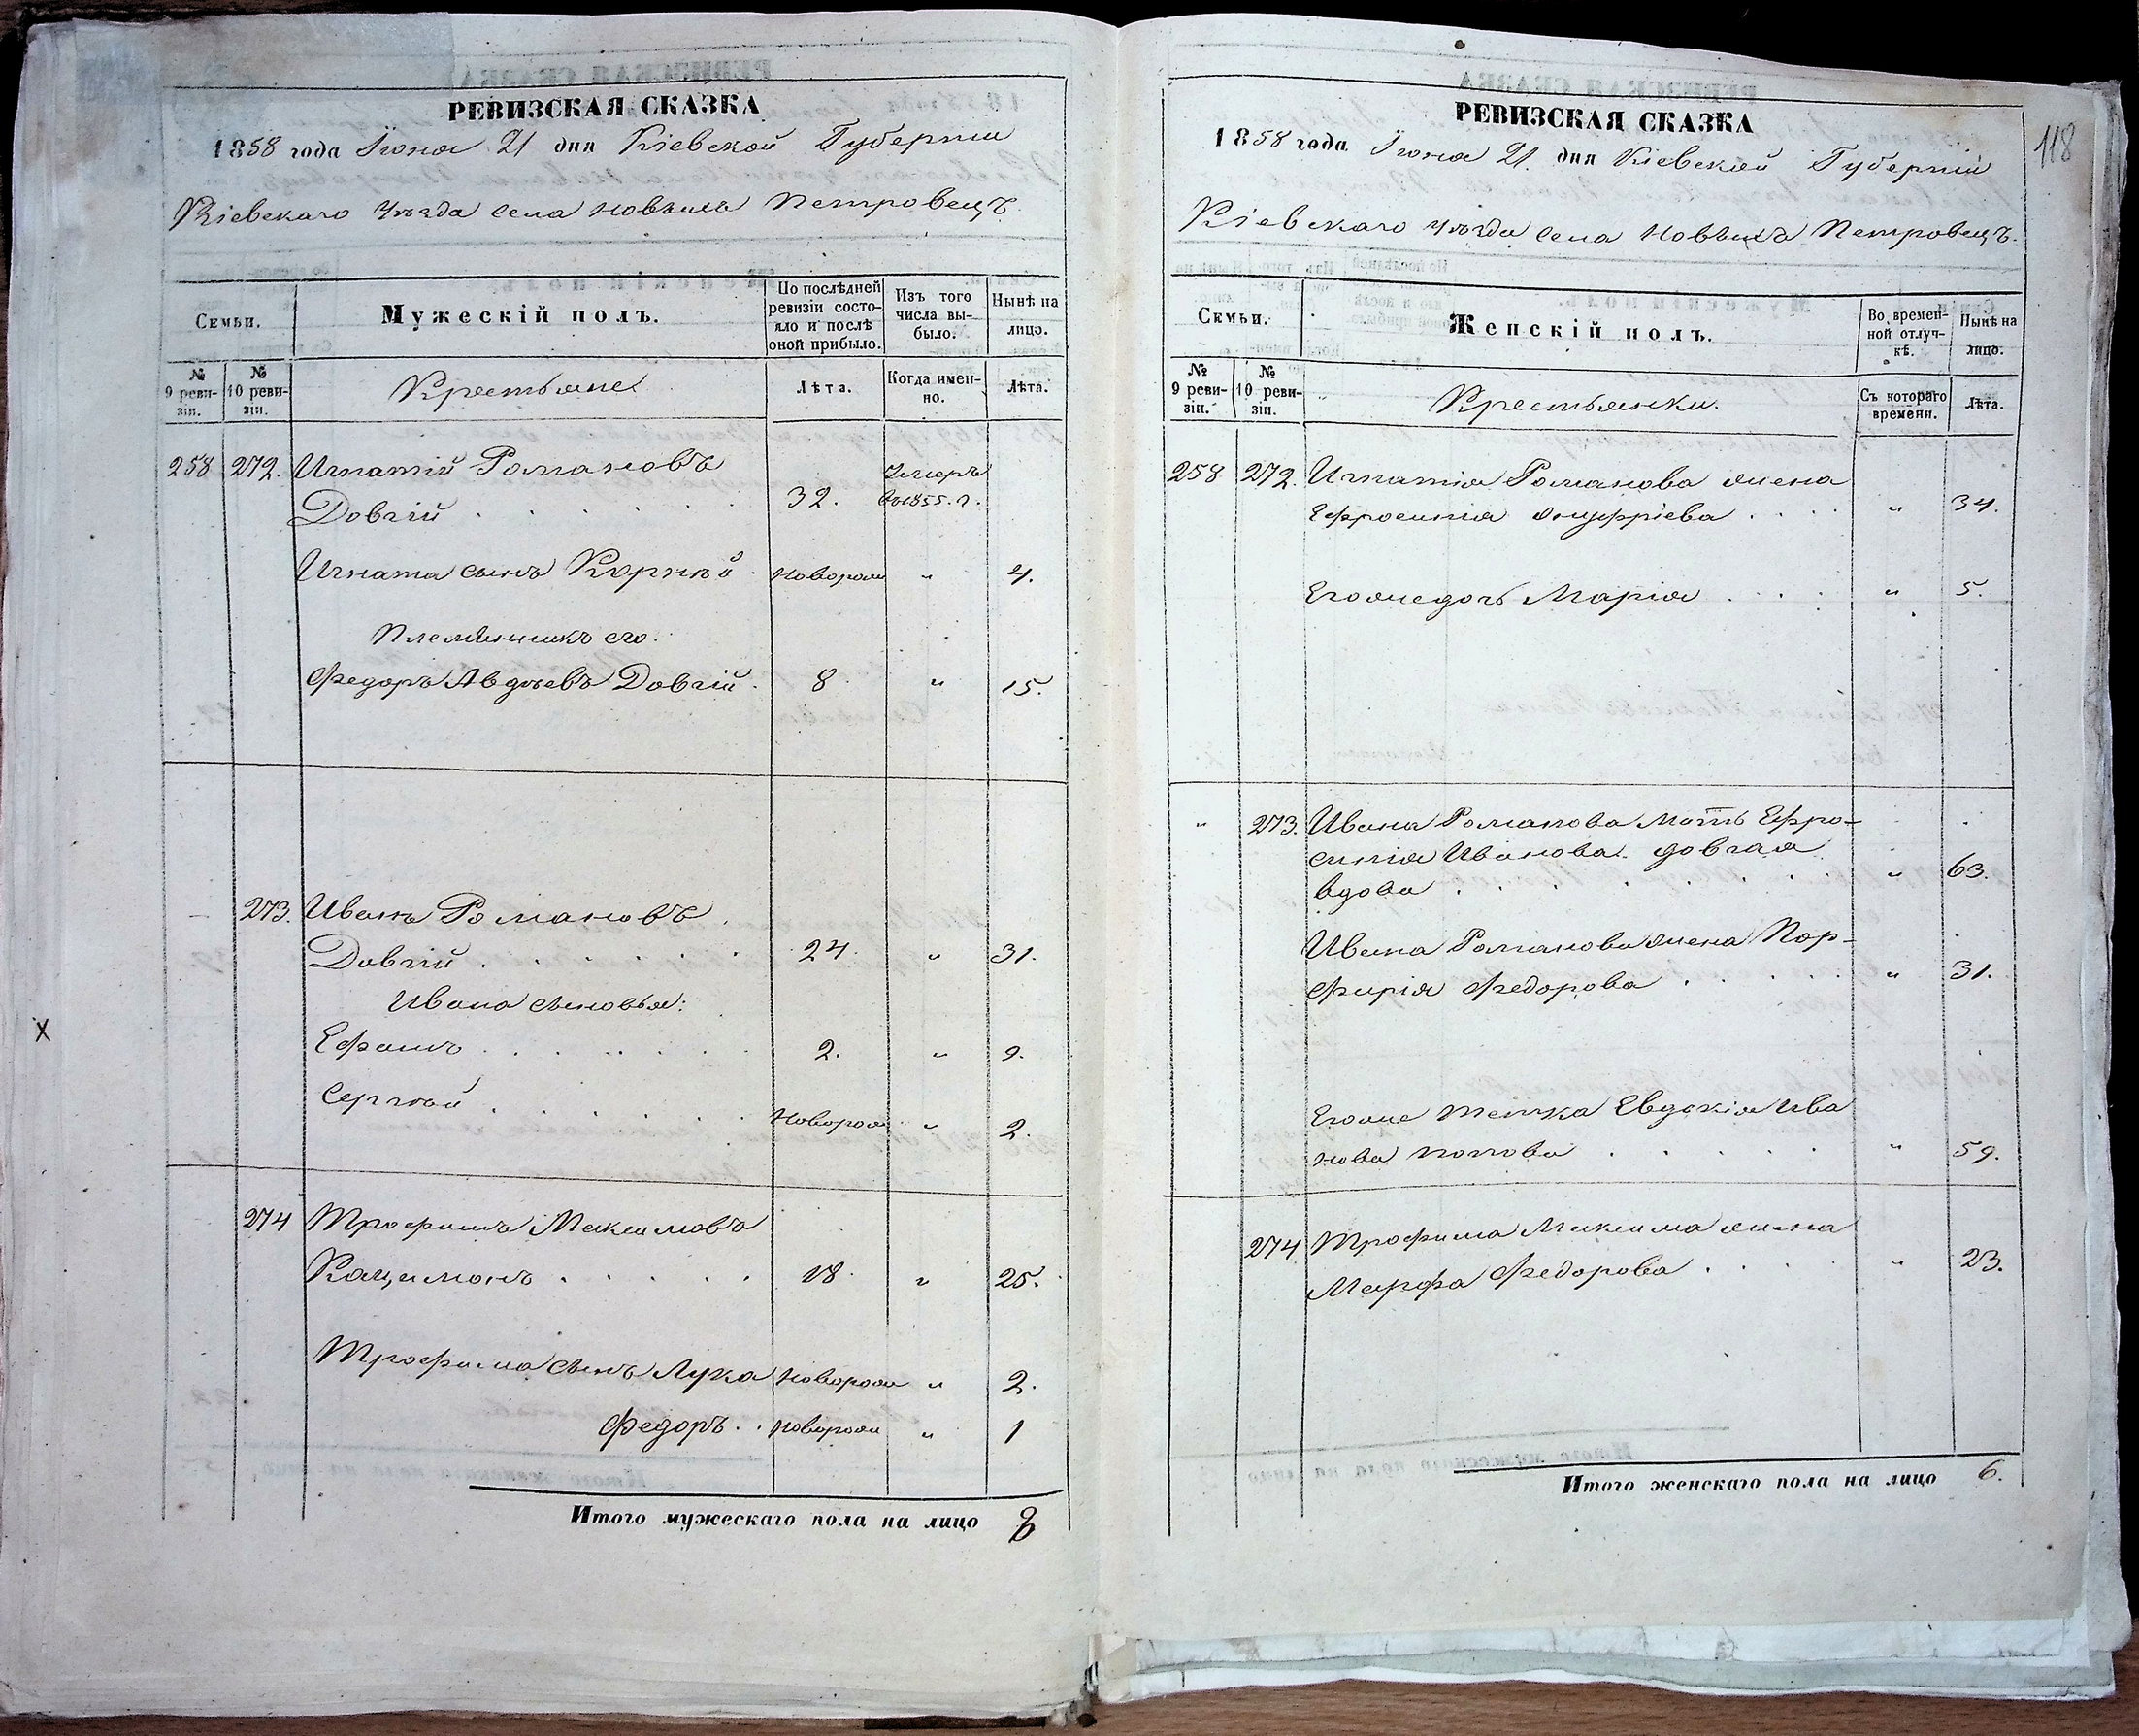 РЕВИЗСКАЯ СКАЗКА
1858 года Іюня 21 дня Кіевской Губерніи
Кіевскаго Уѣзда села Новыхъ Петровецъ.
Семьи.
Мужескій полъ.
По послѣдней ревизіи состояло и послѣ оной прибыло.
Изъ того числа выбыло.
Нынѣ на лицо.
№ 9 ревизіи.
№ 10 ревизіи.
Крестьяне
Лѣта.
Когда именно.
Лѣта.
258 272. Игнатій Романовъ Умеръ
Довгій . . . . . . 32. въ 1855. г.
Игната сынъ Корній новорож " 4.
Племянникъ его.
Федоръ Авдѣевъ Довгій. 8 " 15.
273. Иванъ Романовъ
Довгій . . . . . . 24. " 31.
Ивана сыновья:
Ефимъ . . . . . . 2. " 9.
Сергѣй . . . . . . Новорож " 2.
274 Трофимъ Максимовъ
Кацимонъ . . . . . 18. " 25.
Трофима сынъ Лука новорож " 2.
Федоръ . . новорож " 1
Итого мужескаго пола на лицо 8
118
РЕВИЗСКАЯ СКАЗКА
1858 года Іюня 21. дня Кіевской Губерніи
Кіевскаго Уѣзда села Новыхъ Петровецъ.
Семьи.
Женскій полъ.
Во временной отлучкѣ.
Нынѣ на лицо.
№ 9 ревизіи.
№ 10 ревизіи.
Крестьянки.
Съ котораго времени.
Лѣта.
258 272. Игнатія Романова жена
Ефросинія Онуфріева . . . . " 34.
Егожедочь Марія . . . . " 5.
" 273. Ивана Романова мать Ефро-
синія Иванова Довгая
вдова . . . . . . . " 63.
Ивана Романова жена Пор-
фирія Федорова . . . . . " 31.
Егоже тетка Евдокія Ива
нова Попова . . . . . " 59.
274. Трофима Максима жена
Марфа Федорова . . . . " 23.
Итого женскаго пола на лицо 6.